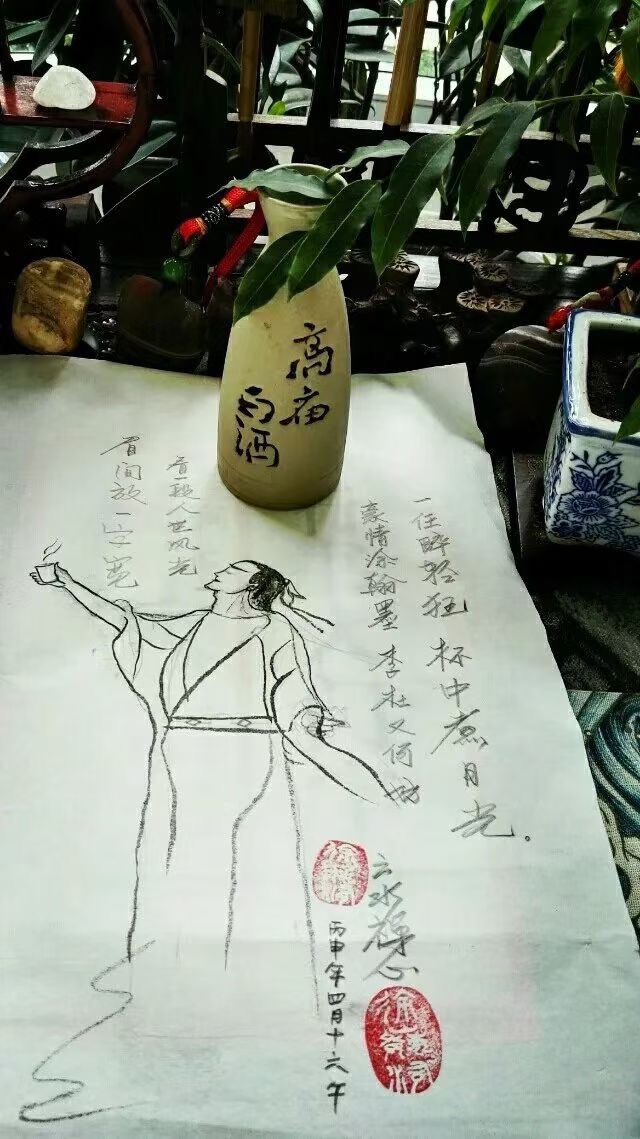 高庙
白酒
一任醉轻狂 杯中煮月光.
豪情涂翰墨 李杜又何妨
看一段人世风光
眉间放一字宽
云水禅心
丙申年四月十六午